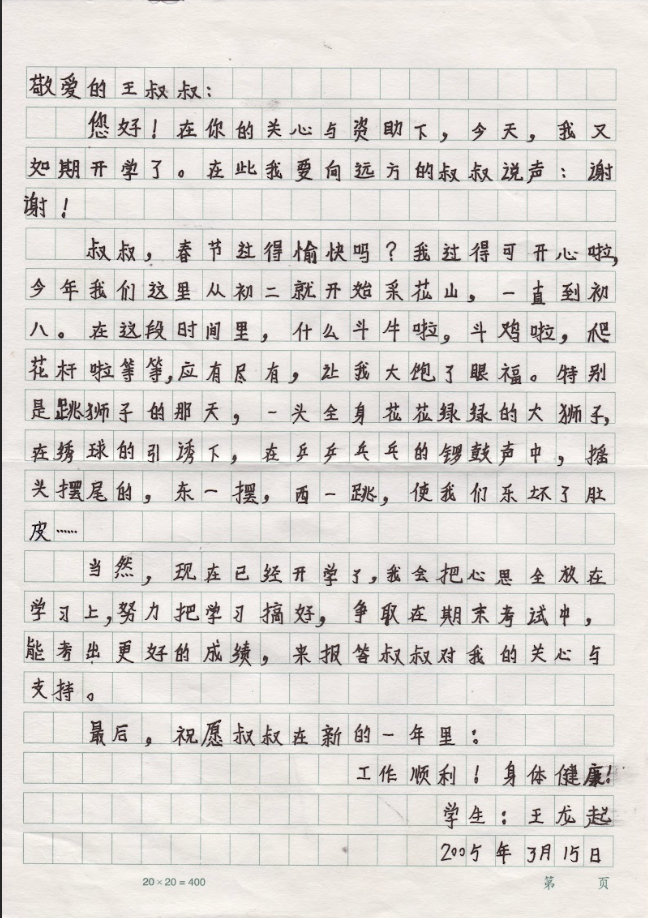 敬爱的王叔叔：
您好！在你的关心与资助下，今天，我又
如期开学了。在此我要向远方的叔叔说声：谢
谢！
叔叔，春节过得愉快吗？我过得可开心啦，
今年我们这里从初二就开始采花山，一直到初
八。在这段时间里，什么斗牛啦，斗鸡啦，爬
花杆啦等等，应有尽有，让我大饱了眼福。特别
是跳狮子的那天，一头全身花花绿绿的大狮子，
在绣球的引诱下，在乒乒乓乓的锣鼓声中，摇
头摆尾的，东一摆，西一跳，使我们乐坏了肚
皮……
当然，现在已经开学了，我会把心思全放在
学习上，努力把学习搞好，争取在期末考试中，
能考出更好的成绩，来报答叔叔对我的关心与
支持。
最后，祝愿叔叔在新的一年里：
工作顺利！身体健康！
学生：王龙起
2005年3月15日
20×20=400 第 页